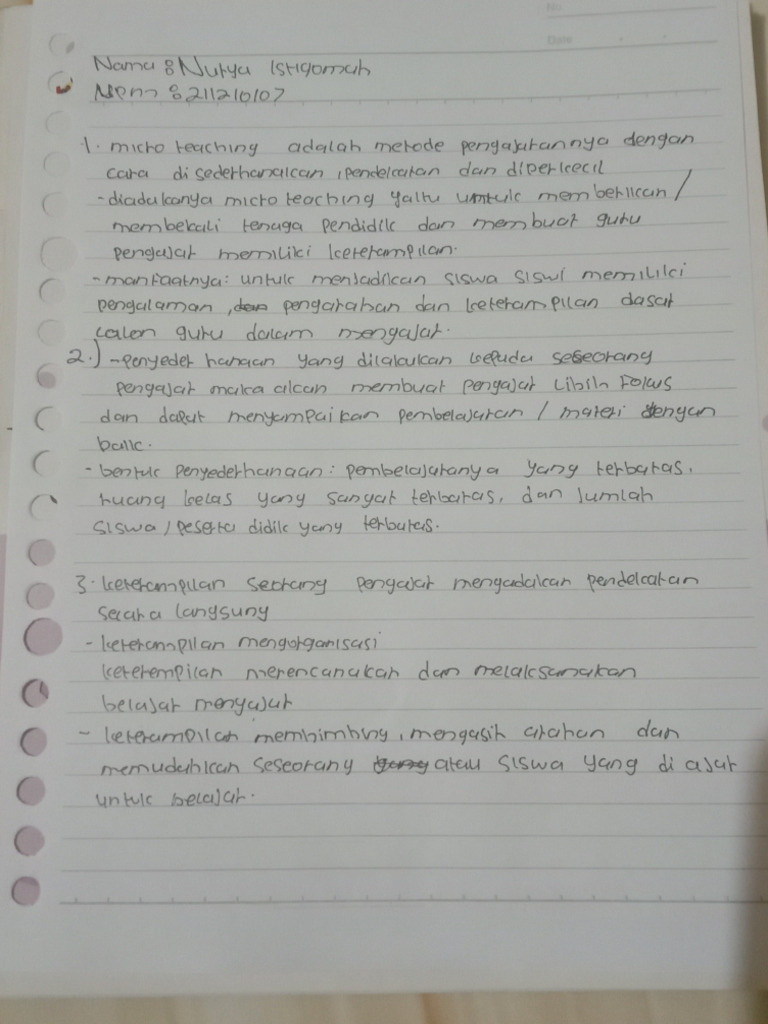 No.
Date
Nama : Nurya Istiqomah
NPM : 211210107
1. micro teaching adalah metode pengajarannya dengan
cara disederhanakan, pendekatan dan diperkecil
- diadakanya micro teaching yaitu untuk memberikan /
membekali tenaga pendidik dan membuat guru
pengajar memiliki keterampilan.
- manfaatnya: untuk menjadikan siswa siswi memiliki
pengalaman, pengarahan dan keterampilan dasar
calon guru dalam mengajar.
2.) - penyederhanaan yang dilakukan kepada seseorang
pengajar maka akan membuat pengajar libih fokus
dan dapat menyampaikan pembelajaran / materi dengan
baik.
- bentuk penyederhanaan: pembelajaranya yang terbatas,
ruang kelas yang sangat terbatas, dan jumlah
siswa / peserta didik yang terbatas.
3. keterampilan seorang pengajar mengadakan pendekatan
secara langsung
- keterampilan mengorganisasi
keterempilan merencanakan dan melaksanakan
belajar mengajar
- keterampilan membimbing, mengasih arahan dan
memudahkan seseorang atau siswa yang di ajar
untuk belajar.